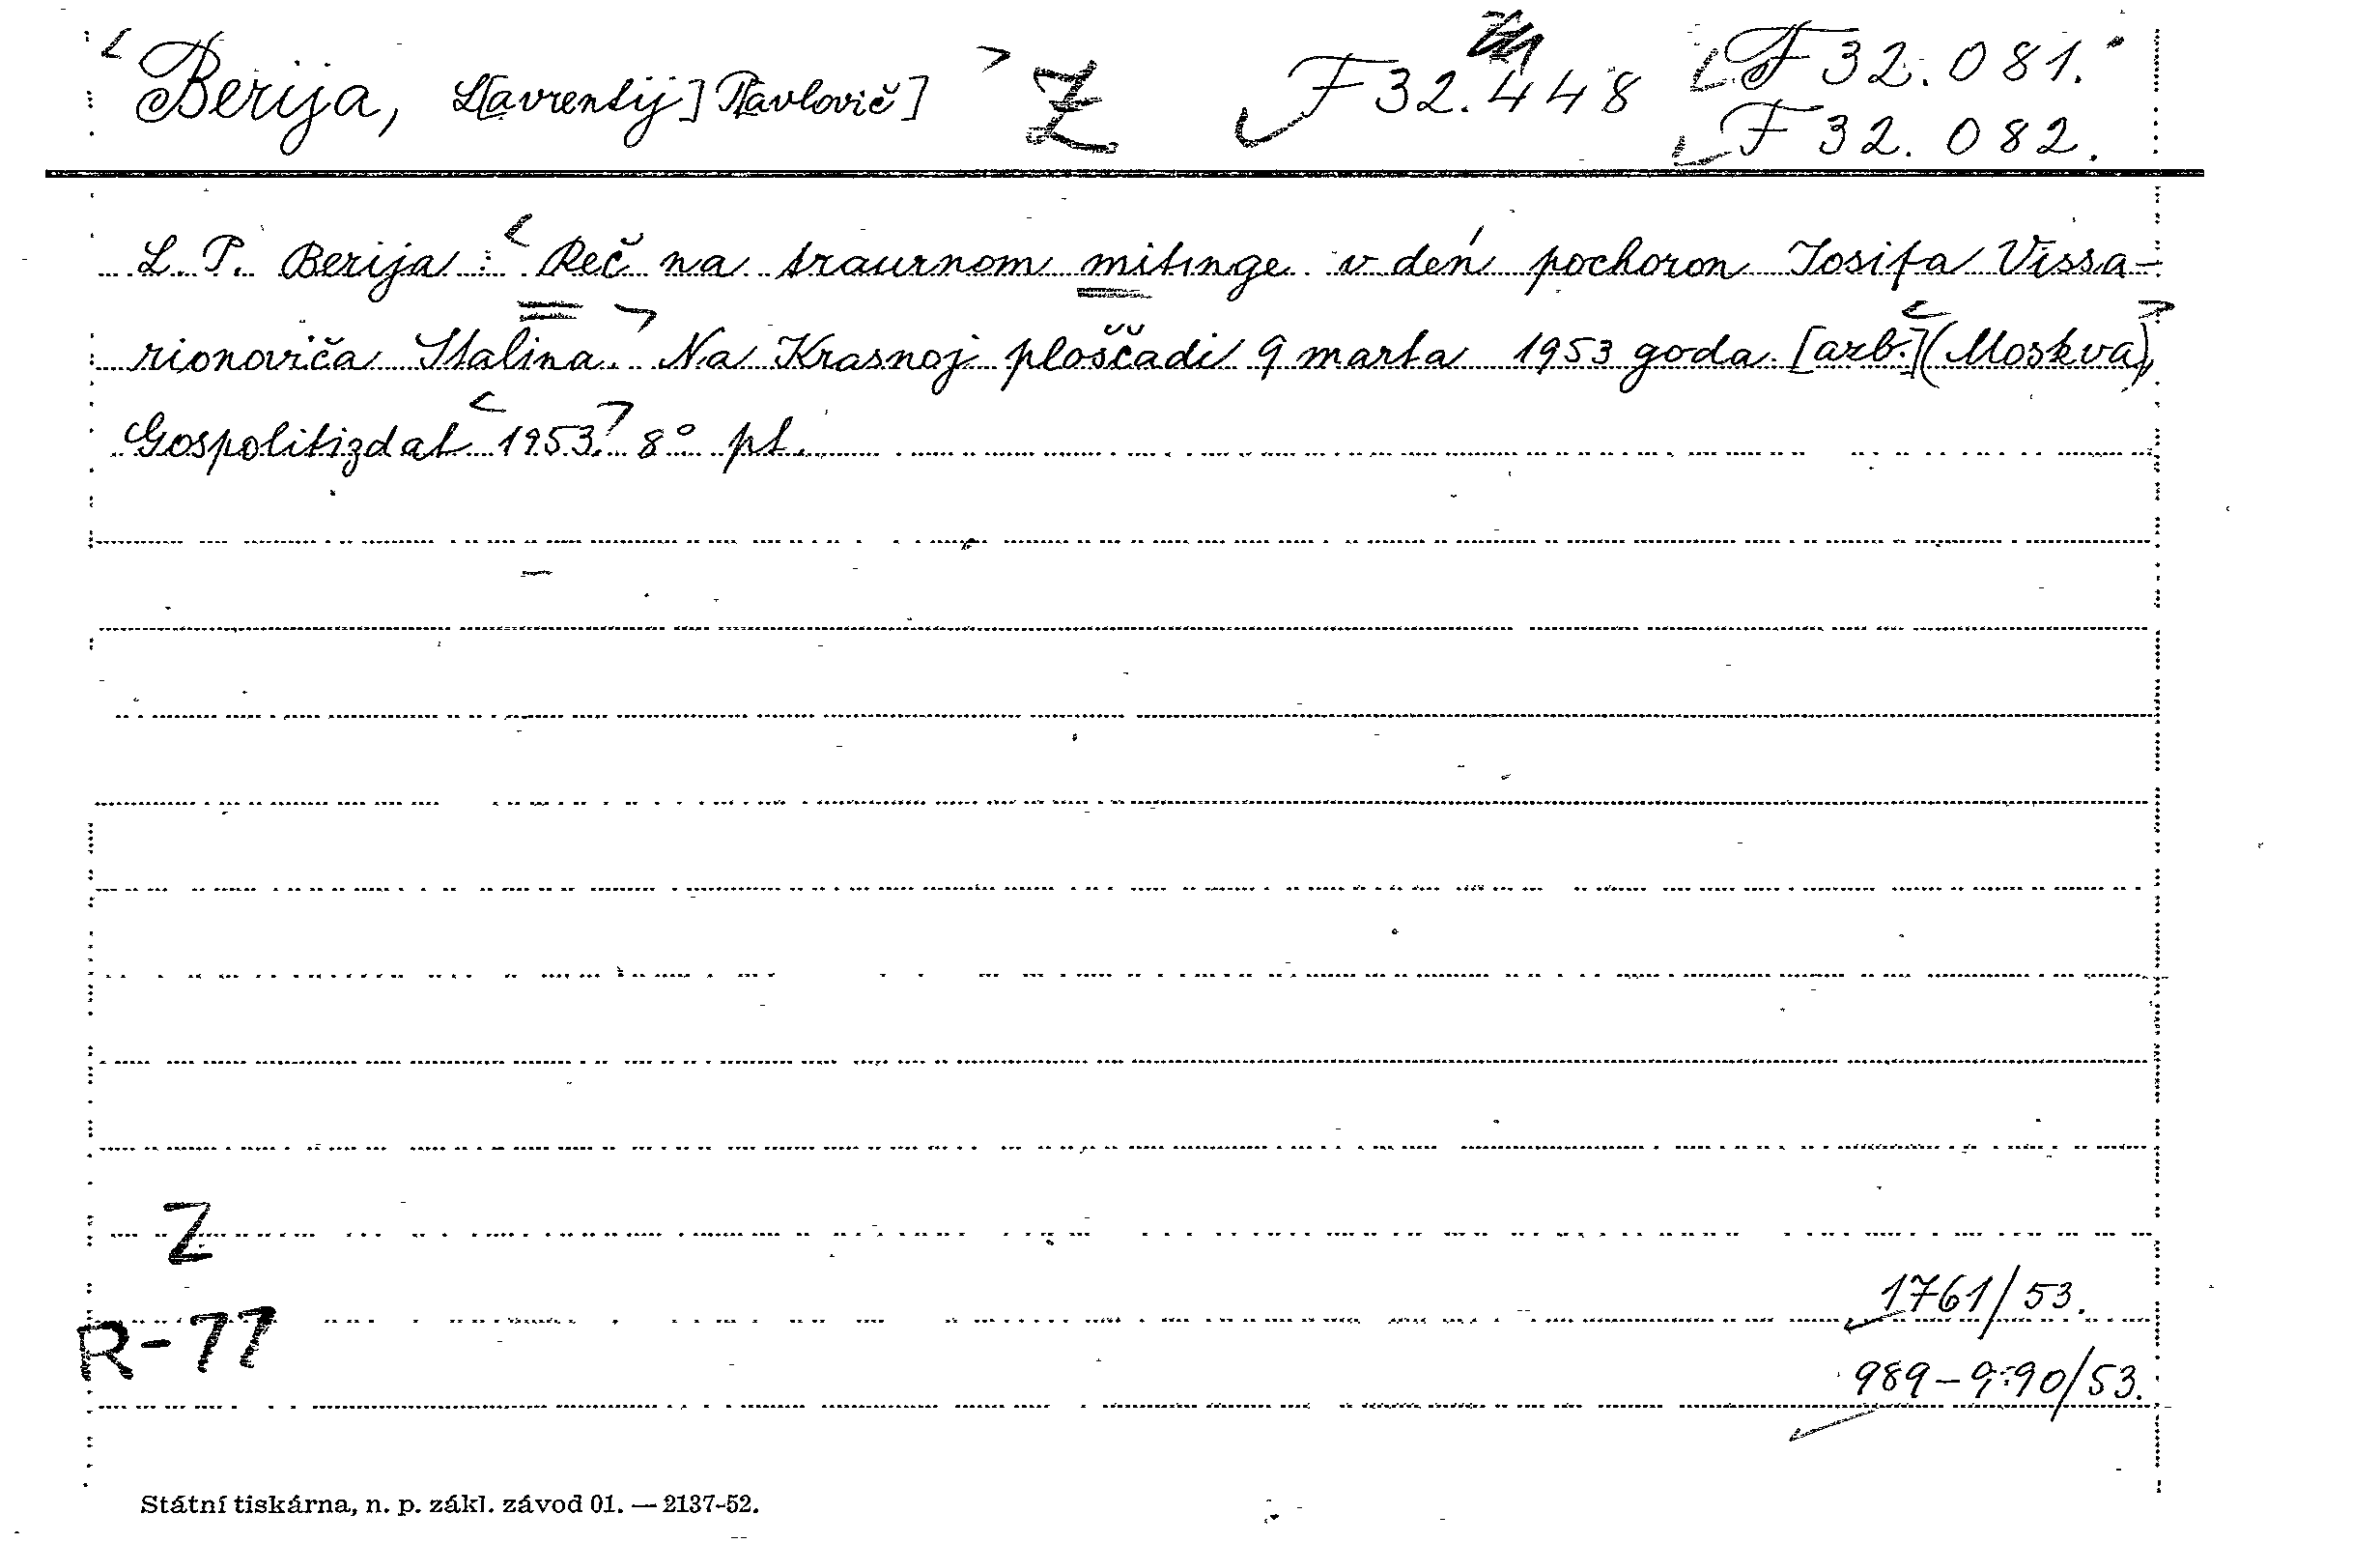 Berija, L[avrentij] P[avlovič] Z F 32.448 F 32.081.
F 32.082.
L. P. Berija: Reč na traurnom mitinge v deń pochoron Iosifa Vissa-
rionoviča Stalina. Na Krasnoj ploščadi 9 marta 1953 goda. [azb.] (Moskva),
Gospolitizdat 1953. 8° pt.
Z
1761/53.
R-77
989-990/53.
Státní tiskárna, n. p. zákl. závod 01. — 2137-52.